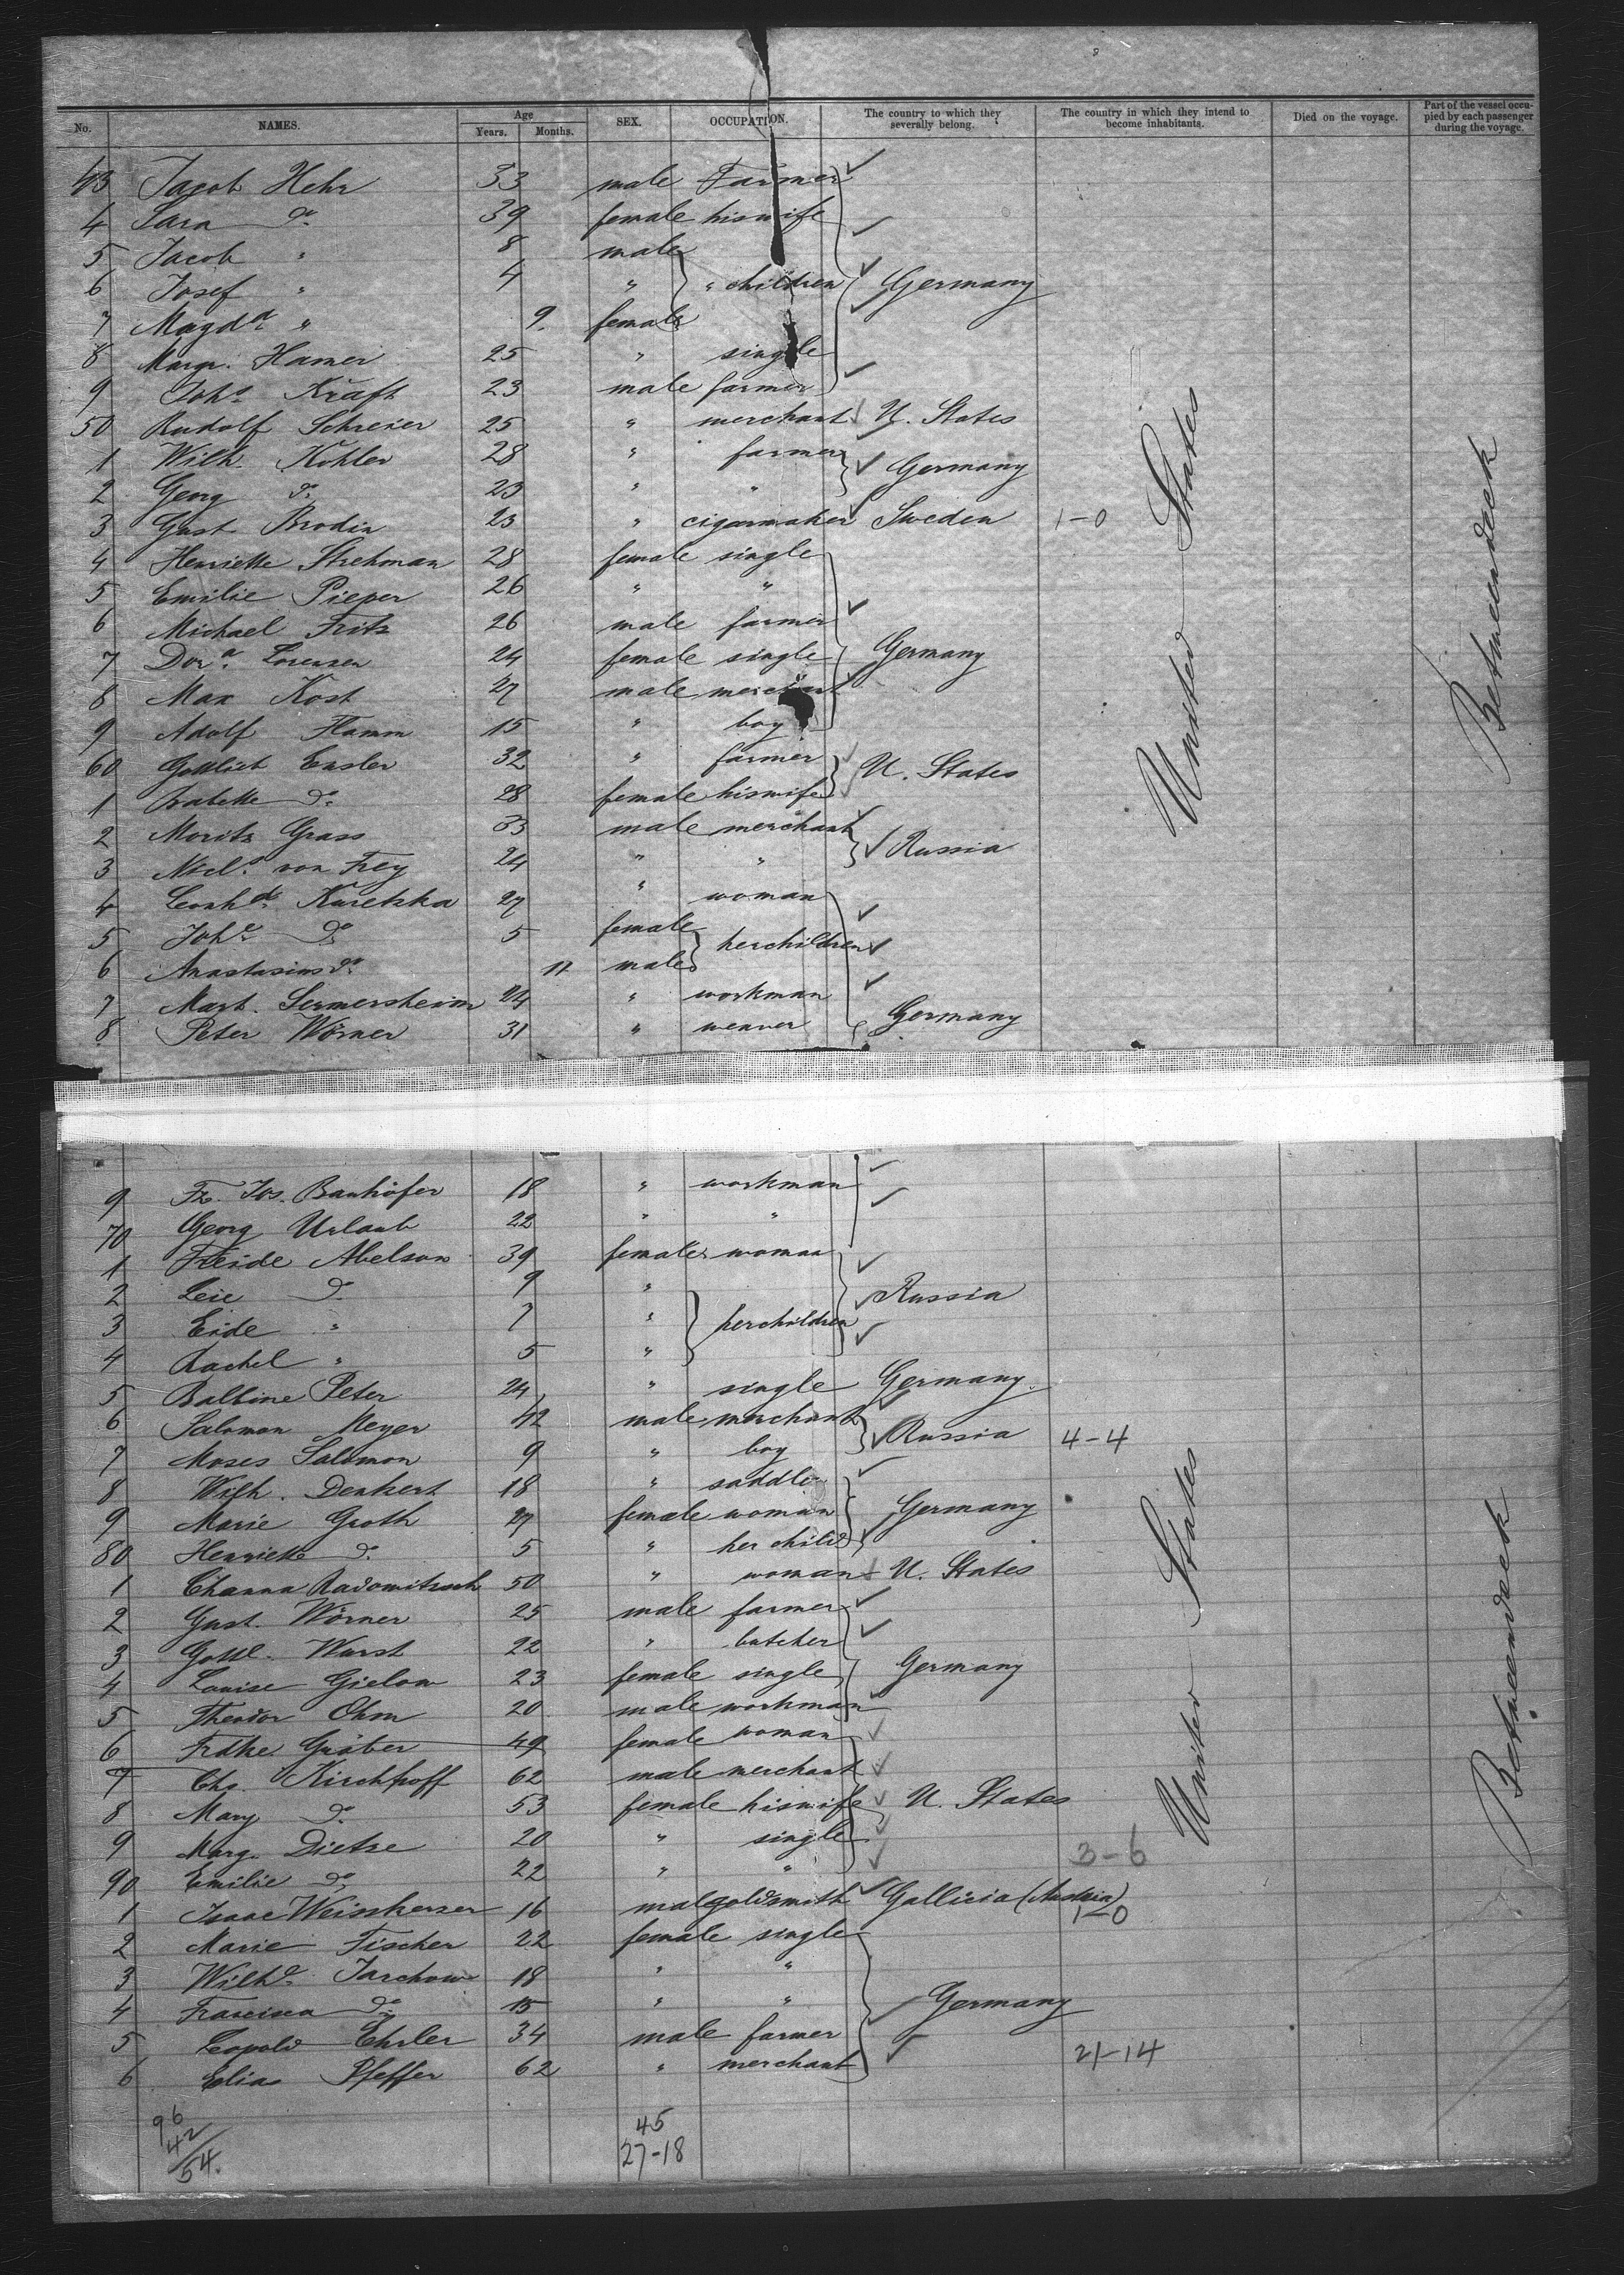 No. NAMES. Age Years. Months. SEX. OCCUPATION. The country to which they severally belong. The country in which they intend to become inhabitants. Died on the voyage. Part of the vessel occupied by each passenger during the voyage.
43 Jacob Hehr 33 male Farmer
4 Sara do 39 female his wife
5 Jacob " 8 male
6 Josef " 4 " " children Germany
7 Magda " 9. female
8 Margr. Hamer 25 " single
9 Johs Kraft 23 male farmer
50 Rudolf Schreier 25 " merchant U. States
1 Wilh. Kohler 28 " farmer Germany
2 Georg do 23 " "
3 Gust. Brodin 23 " cigarmaker Sweden 1-0
4 Henriette Strehman 28 female single
5 Emilie Pieper 26 " "
6 Michael Fritz 26 male farmer
7 Dora Lorensen 24 female single Germany
8 Max Kost 27 male merchant
9 Adolf Hamm 15 " boy
60 Gottlieb Ensler 32 " farmer U. States
1 Babette do 28 female his wife
2 Moritz Grass 33 male merchant Russia
3 von Frey 24 " "
4 Leonhd Kuretzka 27 " woman
5 Johe do 5 female her children
6 Anastasius do 11 male
7 Mart. Sermersheim 24 " workman
8 Peter Wörner 31 " weaver Germany
United States
Betweendeck
9 Fr. Jos. Banhöfer 18 " workman
70 Georg Urlaub 22 " "
1 Freide Abelson 39 female woman
2 Leie do 9 " Russia
3 Eide " 7 " her children
4 Rachel " 5 "
5 Balbine Peter 24 " single Germany.
6 Salomon Meyer 42 male merchant Russia 4-4
7 Moses Salomon 9 " boy
8 Wilh. Denkert 18 " saddler
9 Marie Groth 27 female woman Germany
80 Henriette do 5 " her child
1 Channa Radomitzsch 50 " woman U. States
2 Gust. Wörner 25 male farmer
3 Gottl. Wurst 22 " butcher
4 Louise Gielow 23 female single Germany
5 Theodor Ohm 20 male workman
6 Frdke Gräber 49 female woman
7 Chs. Kirchhoff 62 male merchant
8 Mary do 53 female his wife U. States
9 Marg. Dietze 20 " single
90 Emilie do 22 " " 3-6
1 Isaac Weissherzer 16 male goldsmith Gallicia (Austria) 1-0
2 Marie Fischer 22 female single
3 Wilhe Jarchow 18 " "
4 Francisca do 15 " " Germany
5 Leopold Ehrler 34 male farmer
6 Elias Pfeffer 62 " merchant 21-14
United States
Betweendeck
96 45
42 27-18
54.